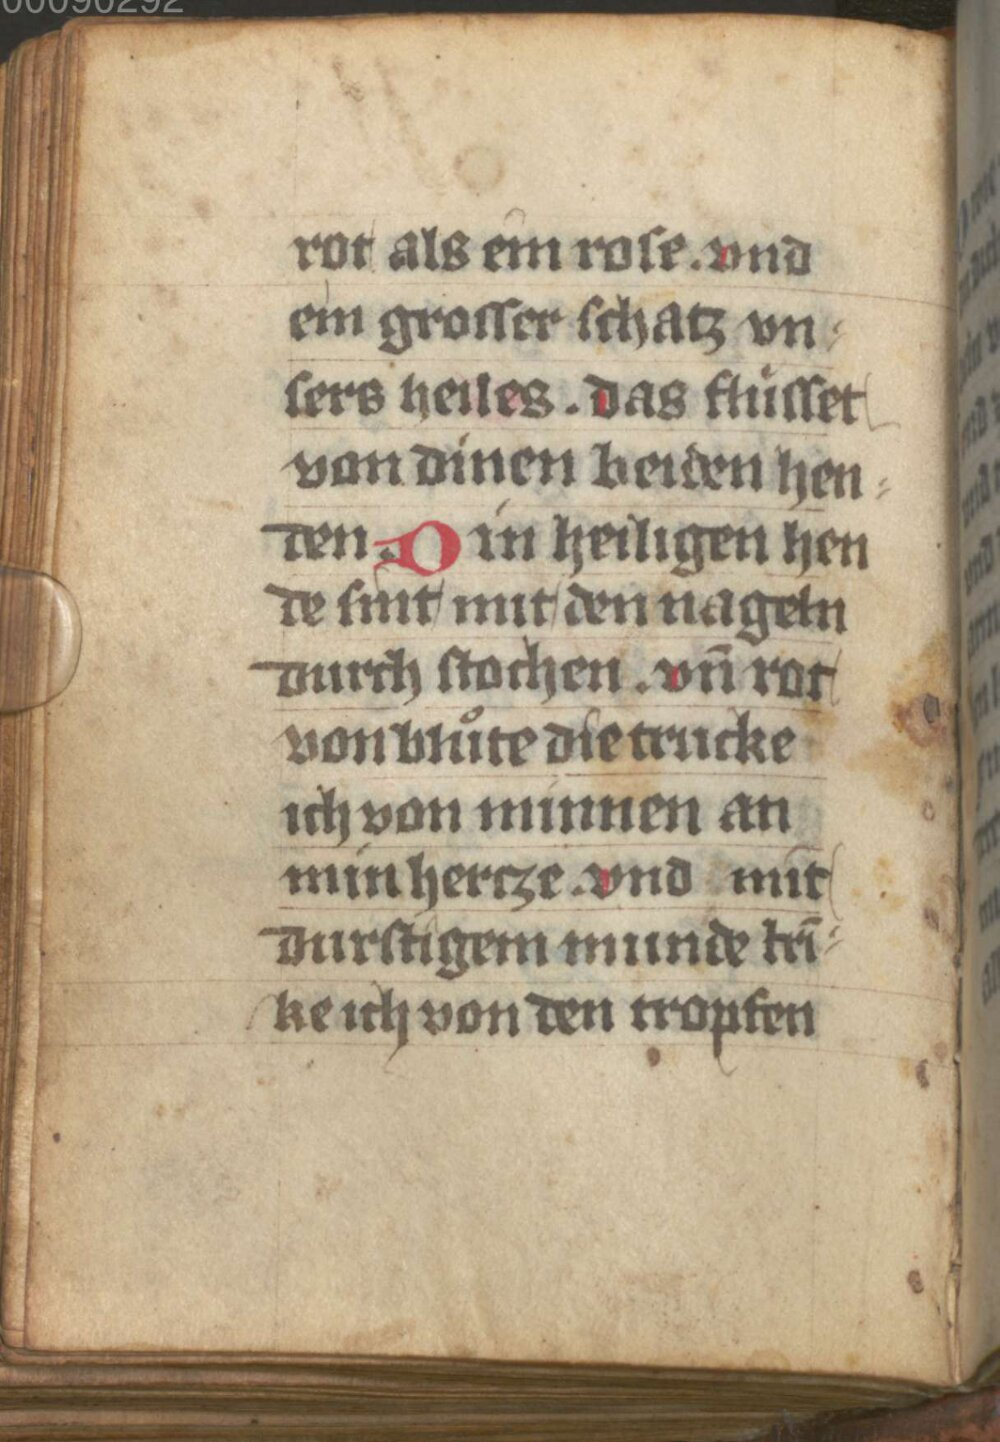 00090292
rot als ein rose. vnd
ein grosser schatz vn-
sers heiles. das flússet
von dinen beiden hen-
den. Din heiligen hen
de sint mit den nageln
durch stochen. vn̄ rot
von blůte die trucke
ich von minnen an
min hercze. vnd mit
durstigem munde trī-
ke ich von den tropfen